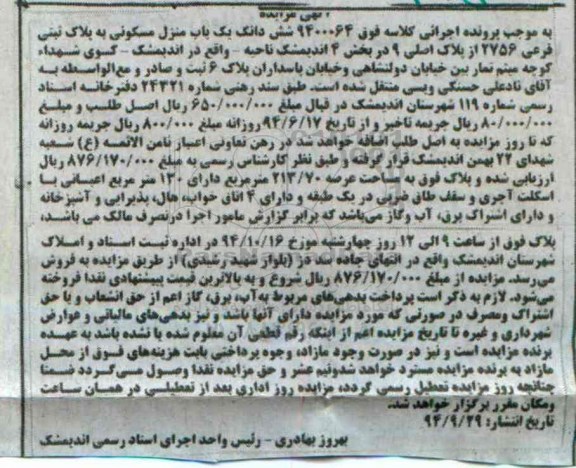 آگهی مزایده
به موجب پرونده اجرائی کلاسه فوق ۹۴۰۰۰۶۴ شش دانگ یک باب منزل مسکونی به پلاک ثبتی
فرعی ۲۷۵۶ از پلاک اصلی ۹ در بخش ۴ اندیمشک ناحیه - واقع در اندیمشک - کسوی شهداء
کوچه میثم تمار بین خیابان دولتشاهی وخیابان پاسداران پلاک ۶ ثبت و صادر و مع‌الواسطه به
آقای نادعلی حسنکی ویسی منتقل شده است. طبق سند رهنی شماره ۲۴۳۲۱ دفترخانه اسناد
رسمی شماره ۱۱۹ شهرستان اندیمشک در قبال مبلغ ۶۵۰/۰۰۰/۰۰۰ ریال اصل طلب و مبلغ
۸۰/۰۰۰/۰۰۰ ریال جریمه تاخیر و از تاریخ ۹۴/۶/۱۷ روزانه مبلغ ۸۰۰/۰۰۰ ریال جریمه روزانه
که تا روز مزایده به اصل طلب اضافه خواهد شد در رهن تعاونی اعتبار ثامن الائمه (ع) شعبه
شهدای ۲۲ بهمن اندیمشک قرار گرفته و طبق نظر کارشناس رسمی به مبلغ ۸۷۶/۱۷۰/۰۰۰ ریال
ارزیابی شده و پلاک فوق به مساحت عرصه ۲۱۳/۷۰ مترمربع دارای ۱۳۰ متر مربع اعیانی با
اسکلت آجری و سقف طاق ضربی در یک طبقه و دارای ۴ اتاق خواب، هال، پذیرایی و آشپزخانه
و دارای اشتراک برق، آب وگاز می‌باشد که برابر گزارش مامور اجرا درتصرف مالک می باشد،
پلاک فوق از ساعت ۹ الی ۱۲ روز چهارشنبه مورخ ۹۴/۱۰/۱۶ در اداره ثبت اسناد و املاک
شهرستان اندیمشک واقع در انتهای جاده سد دز (بلوار شهید رشیدی) از طریق مزایده به فروش
می‌رسد. مزایده از مبلغ ۸۷۶/۱۷۰/۰۰۰ ریال شروع و به بالاترین قیمت پیشنهادی نقدا فروخته
می‌شود. لازم به ذکر است پرداخت بدهی‌های مربوط به آب، برق، گاز اعم از حق انشعاب و یا حق
اشتراک ومصرف در صورتی که مورد مزایده دارای آنها باشد و نیز بدهی‌های مالیاتی و عوارض
شهرداری و غیره تا تاریخ مزایده اعم از اینکه رقم قطعی آن معلوم شده یا نشده باشد به عهده
برنده مزایده است و نیز در صورت وجود مازاد، وجوه پرداختی بابت هزینه‌های فوق از محل
مازاد به برنده مزایده مسترد خواهد شدونیم عشر و حق مزایده نقدا وصول می‌گردد ضمنا
چنانچه روز مزایده تعطیل رسمی گردد، مزایده روز اداری بعد از تعطیلی در همان ساعت
ومکان مقرر برگزار خواهد شد.
تاریخ انتشار: ۹۴/۹/۲۹
بهروز بهادری - رئیس واحد اجرای اسناد رسمی اندیمشک